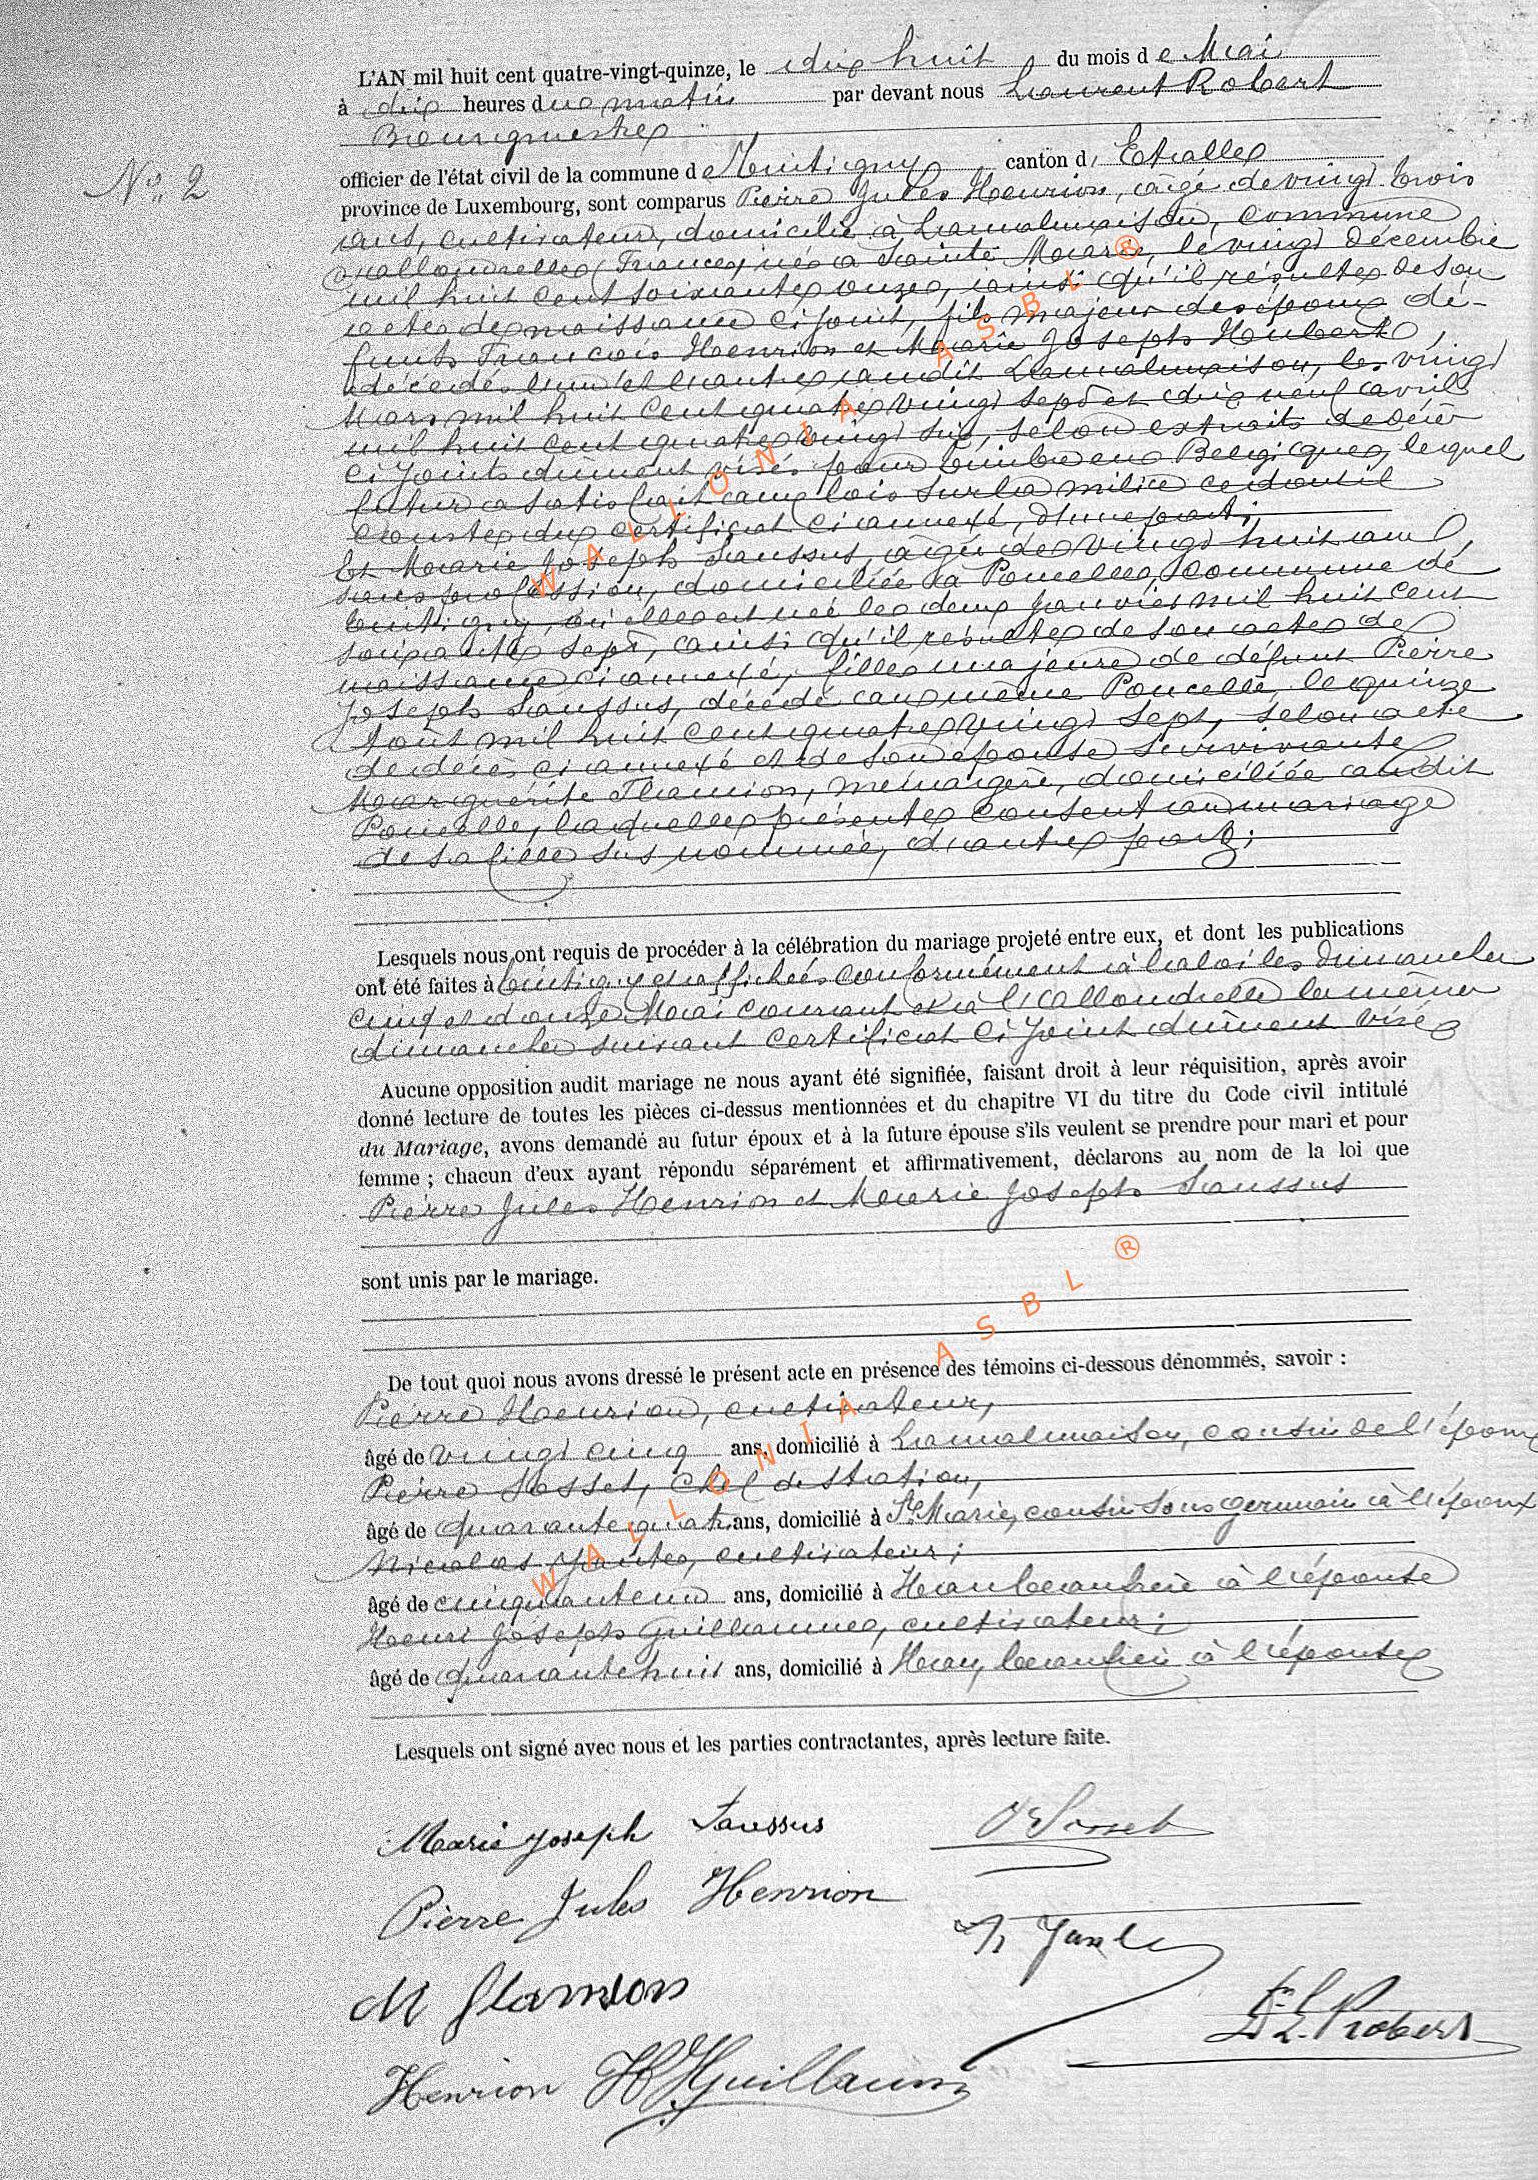 L'AN mil huit cent quatre-vingt-quinze, le dix huit du mois de Mai
à dix heures du matin par devant nous Laurent Robert
Bourgmestre
No. 2
officier de l'état civil de la commune de Tintigny canton d'Etalle
province de Luxembourg, sont comparus Pierre Jules Henrion, âgé de vingt trois
ans, cultivateur, domicilié à Lamalmaison, commune
d'allondrelle (France) né à Sainte Marie, le vingt Décembre
mil huit cent soixante onze, ainsi qu'il résulte de son
acte de naissance ci joint, fils majeur des époux dé-
funts François Henrion et Marie Joseph Houbert
décédés l'un et l'autre audit Lamalmaison, les vingt
Mars mil huit cent quatre vingt sept et dix neuf avril
mil huit cent quatre vingt six, selon extraits de décès
ci joints dument visés pour timbre en Belgique, lequel
futur a satisfait aux lois sur la milice ce dont il
conste du certificat ci annexé, d'une part;
Et Marie Joseph Saussus, âgée de vingt huit ans,
sans profession, domiciliée à Poncelle, commune de
Tintigny, où elle est née le deux Janvier mil huit cent
soixante sept, ainsi qu'il résulte de son acte de
naissance ci annexé, fille majeure de défunt Pierre
Joseph Saussus, décédé au même Poncelle, le quinze
Août mil huit cent quatre vingt sept, selon acte
de décès ci annexé et de son épouse survivante
Marguerite Flamion, ménagère, domiciliée audit
Poncelle, laquelle présente consent au mariage
de sa fille sus nommée, d'autre part;
Lesquels nous ont requis de procéder à la célébration du mariage projeté entre eux, et dont les publications
ont été faites à Tintigny et affichées conformément à la loi les dimanches
cinq et douze Mai courant et à l'Allondrelle les mêmes
dimanches suivant certificat ci joint dûment visé
Aucune opposition audit mariage ne nous ayant été signifiée, faisant droit à leur réquisition, après avoir
donné lecture de toutes les pièces ci-dessus mentionnées et du chapitre VI du titre du Code civil intitulé
du Mariage, avons demandé au futur époux et à la future épouse s'ils veulent se prendre pour mari et pour
femme ; chacun d'eux ayant répondu séparément et affirmativement, déclarons au nom de la loi que
Pierre Jules Henrion et Marie Joseph Saussus
sont unis par le mariage.
De tout quoi nous avons dressé le présent acte en présence des témoins ci-dessous dénommés, savoir :
Pierre Henrion, cultivateur,
âgé de vingt cinq ans, domicilié à Lamalmaison, cousin de l'époux
Pierre Sosset, chef de station,
âgé de quarante quatre ans, domicilié à Ste Marie, cousin sous germain à l'époux
Nicolas Yante, cultivateur;
âgé de cinquante un ans, domicilié à Han beaufrère à l'épouse
Henri Joseph Guillaume, cultivateur;
âgé de quarante huit ans, domicilié à Han, beaufrère à l'épouse
Lesquels ont signé avec nous et les parties contractantes, après lecture faite.
Marie Joseph Saussus
Sosset
Pierre Jules Henrion
N Yante
M Flamion
L Robert
Henrion HJGuillaume
WALLONIA ASBL ®
WALLONIA ASBL ®